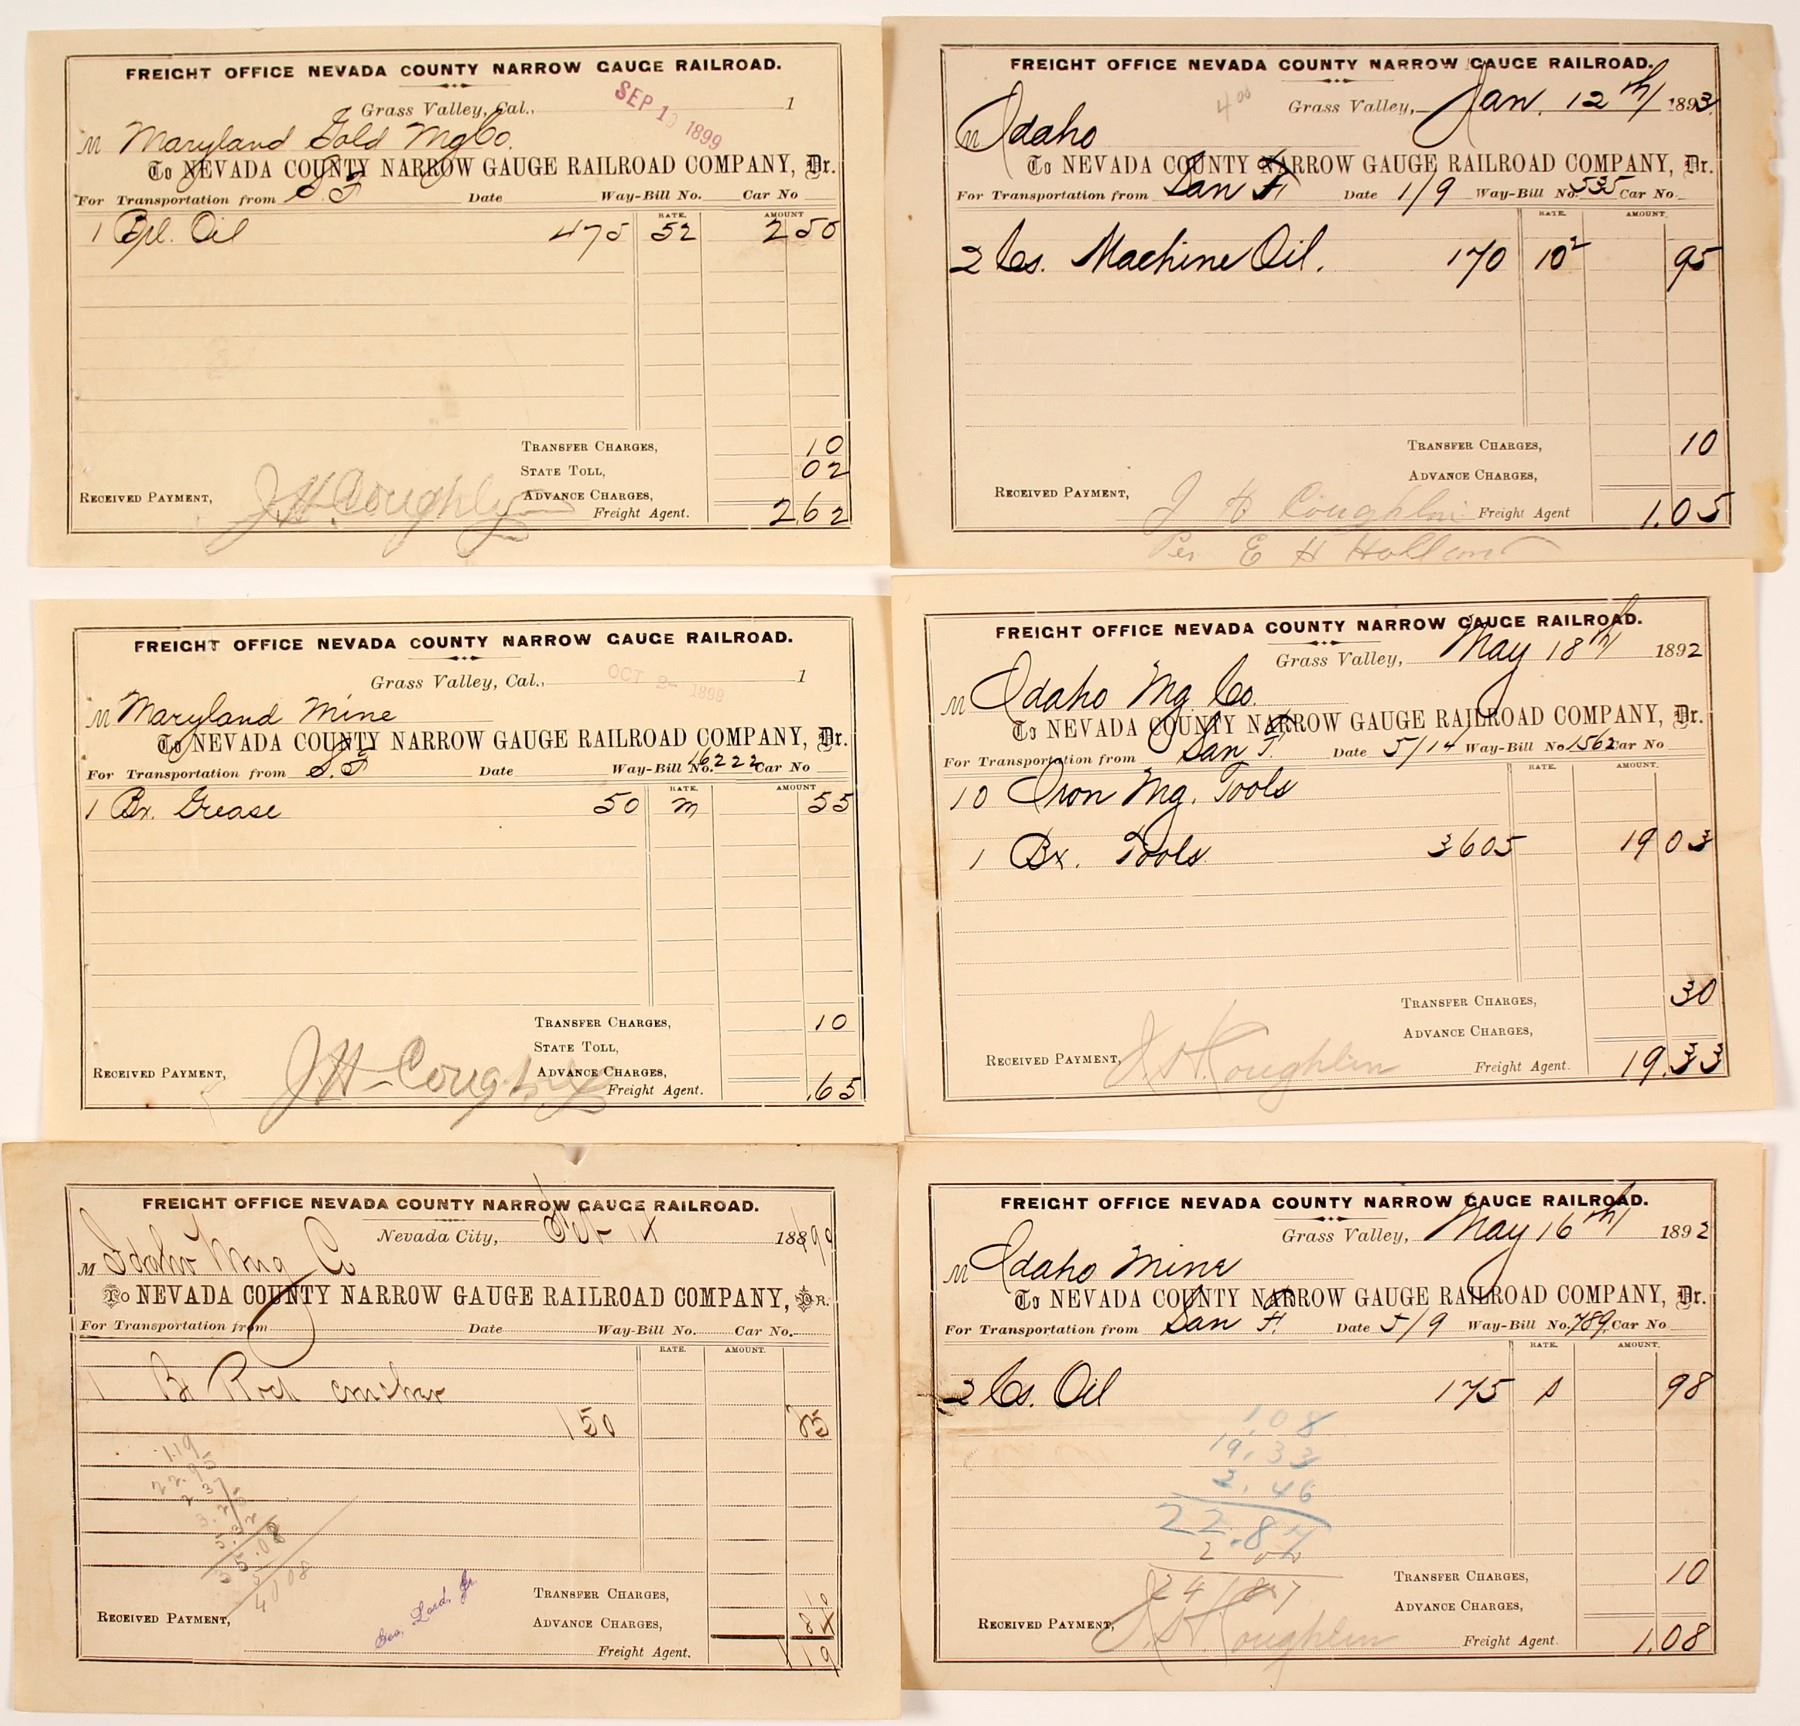 FREIGHT OFFICE NEVADA COUNTY NARROW GAUGE RAILROAD.
Grass Valley, Cal., SEP 1 1899 1
M Maryland Gold Mg Co.
To NEVADA COUNTY NARROW GAUGE RAILROAD COMPANY, Dr.
For Transportation from S.F Date Way-Bill No. Car No
RATE. AMOUNT
1 Brl. Oil 475 52 2 50
TRANSFER CHARGES, 10
STATE TOLL, 02
ADVANCE CHARGES,
RECEIVED PAYMENT, J.H. Coughlin Freight Agent. 2.62
FREIGHT OFFICE NEVADA COUNTY NARROW GAUGE RAILROAD.
4 00 Grass Valley, Jan. 12th 1893.
M Idaho
To NEVADA COUNTY NARROW GAUGE RAILROAD COMPANY, Dr.
For Transportation from San F. Date 1/9 Way-Bill No. 535 Car No.
RATE. AMOUNT.
2 Cs. Machine Oil. 170 10 2 95
TRANSFER CHARGES, 10
ADVANCE CHARGES,
RECEIVED PAYMENT, J H Coughlin Freight Agent 1.05
Per E H Holland
FREIGHT OFFICE NEVADA COUNTY NARROW GAUGE RAILROAD.
Grass Valley, Cal., OCT 2- 1899 1
M Maryland Mine
To NEVADA COUNTY NARROW GAUGE RAILROAD COMPANY, Dr.
For Transportation from S.F Date Way-Bill No. 16222 Car No
RATE. AMOUNT
1 Bx. Grease 50 m 55
TRANSFER CHARGES, 10
STATE TOLL,
ADVANCE CHARGES,
RECEIVED PAYMENT, J H Coughlin Freight Agent. .65
FREIGHT OFFICE NEVADA COUNTY NARROW GAUGE RAILROAD.
Grass Valley, May 18th 1892
M Idaho Mg. Co.
To NEVADA COUNTY NARROW GAUGE RAILROAD COMPANY, Dr.
For Transportation from San F. Date 5/14 Way-Bill No 1562 Car No
RATE. AMOUNT.
10 Iron Mg. Tools
1 Bx. Tools 3605 19 03
TRANSFER CHARGES, 30
ADVANCE CHARGES,
RECEIVED PAYMENT, J. H Coughlin Freight Agent. 19.33
FREIGHT OFFICE NEVADA COUNTY NARROW GAUGE RAILROAD.
Nevada City, Feb 14 188 90
M Idaho Mng Co
To NEVADA COUNTY NARROW GAUGE RAILROAD COMPANY, DR.
For Transportation from Date Way-Bill No. Car No.
RATE. AMOUNT.
1 Bx Rock crusher
150 25
1.19
22.95
2 37
3.25
5.32
35.08
5
4008
TRANSFER CHARGES, 10
ADVANCE CHARGES, 84
RECEIVED PAYMENT, Geo. Lord, Jr. Freight Agent. 1 19
FREIGHT OFFICE NEVADA COUNTY NARROW GAUGE RAILROAD.
Grass Valley, May 16th 1892
M Idaho Mine
To NEVADA COUNTY NARROW GAUGE RAILROAD COMPANY, Dr.
For Transportation from San F. Date 5/9 Way-Bill No. 789. Car No
RATE. AMOUNT.
2 Cs. Oil 175 s 98
1,08
19,33
2,46
22.87
2 00
24 87
TRANSFER CHARGES, 10
ADVANCE CHARGES,
RECEIVED PAYMENT, J. H Coughlin Freight Agent. 1.08